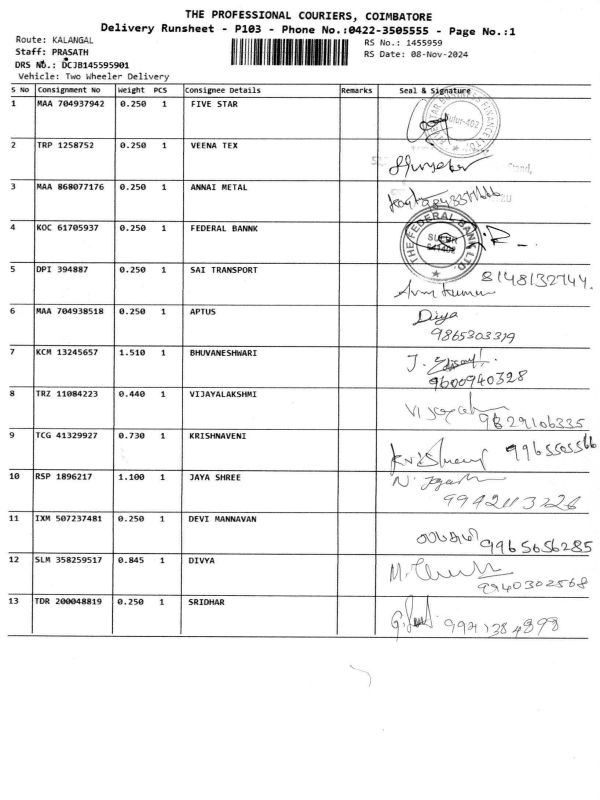 THE PROFESSIONAL COURIERS, COIMBATORE
Delivery Runsheet - P103 - Phone No.:0422-3505555 - Page No.:1
Route: KALANGAL
RS No.: 1455959
Staff: PRASATH
RS Date: 08-Nov-2024
DRS NO.: DCJB145595901
Vehicle: Two Wheeler Delivery
S No Consignment No Weight PCS Consignee Details Remarks Seal & Signature
1 MAA 704937942 0.250 1 FIVE STAR
Sulur-402
2 TRP 1258752 0.250 1 VEENA TEX
3 MAA 868077176 0.250 1 ANNAI METAL
4 KOC 61705937 0.250 1 FEDERAL BANNK
THE FEDERAL BANK LTD.
SULUR
641402
5 DPI 394887 0.250 1 SAI TRANSPORT
8148132744.
Arun kumar
6 MAA 704938518 0.250 1 APTUS Diya
9865303319
7 KCM 13245657 1.510 1 BHUVANESHWARI
9600940328
8 TRZ 11084223 0.440 1 VIJAYALAKSHMI
9629106335
9 TCG 41329927 0.730 1 KRISHNAVENI
9965505566
10 RSP 1896217 1.100 1 JAYA SHREE
9942113226
11 IXM 507237481 0.250 1 DEVI MANNAVAN
9965656285
12 SLM 358259517 0.845 1 DIVYA
9940302568
13 TDR 200048819 0.250 1 SRIDHAR
9941384898